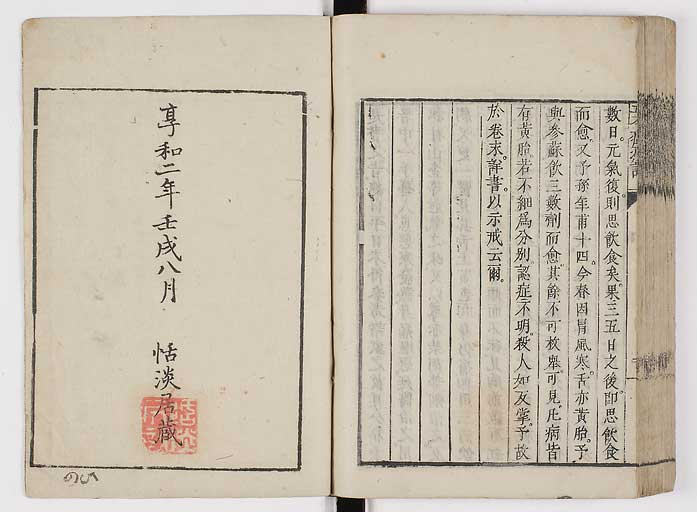 數日。元氣復。則思飲食矣。果三五日之後。即思飲食
而愈。又予孫年甫十四。今春因冒風寒。舌亦黃胎。予
與參蘇飲三數劑而愈。其餘不可枚舉。可見。凡病皆
有黃胎。若不細爲分別。認症不明。殺人如反掌。予故
於卷末。詳書。以示戒云爾。
享和二年壬戌八月 恬淡居藏